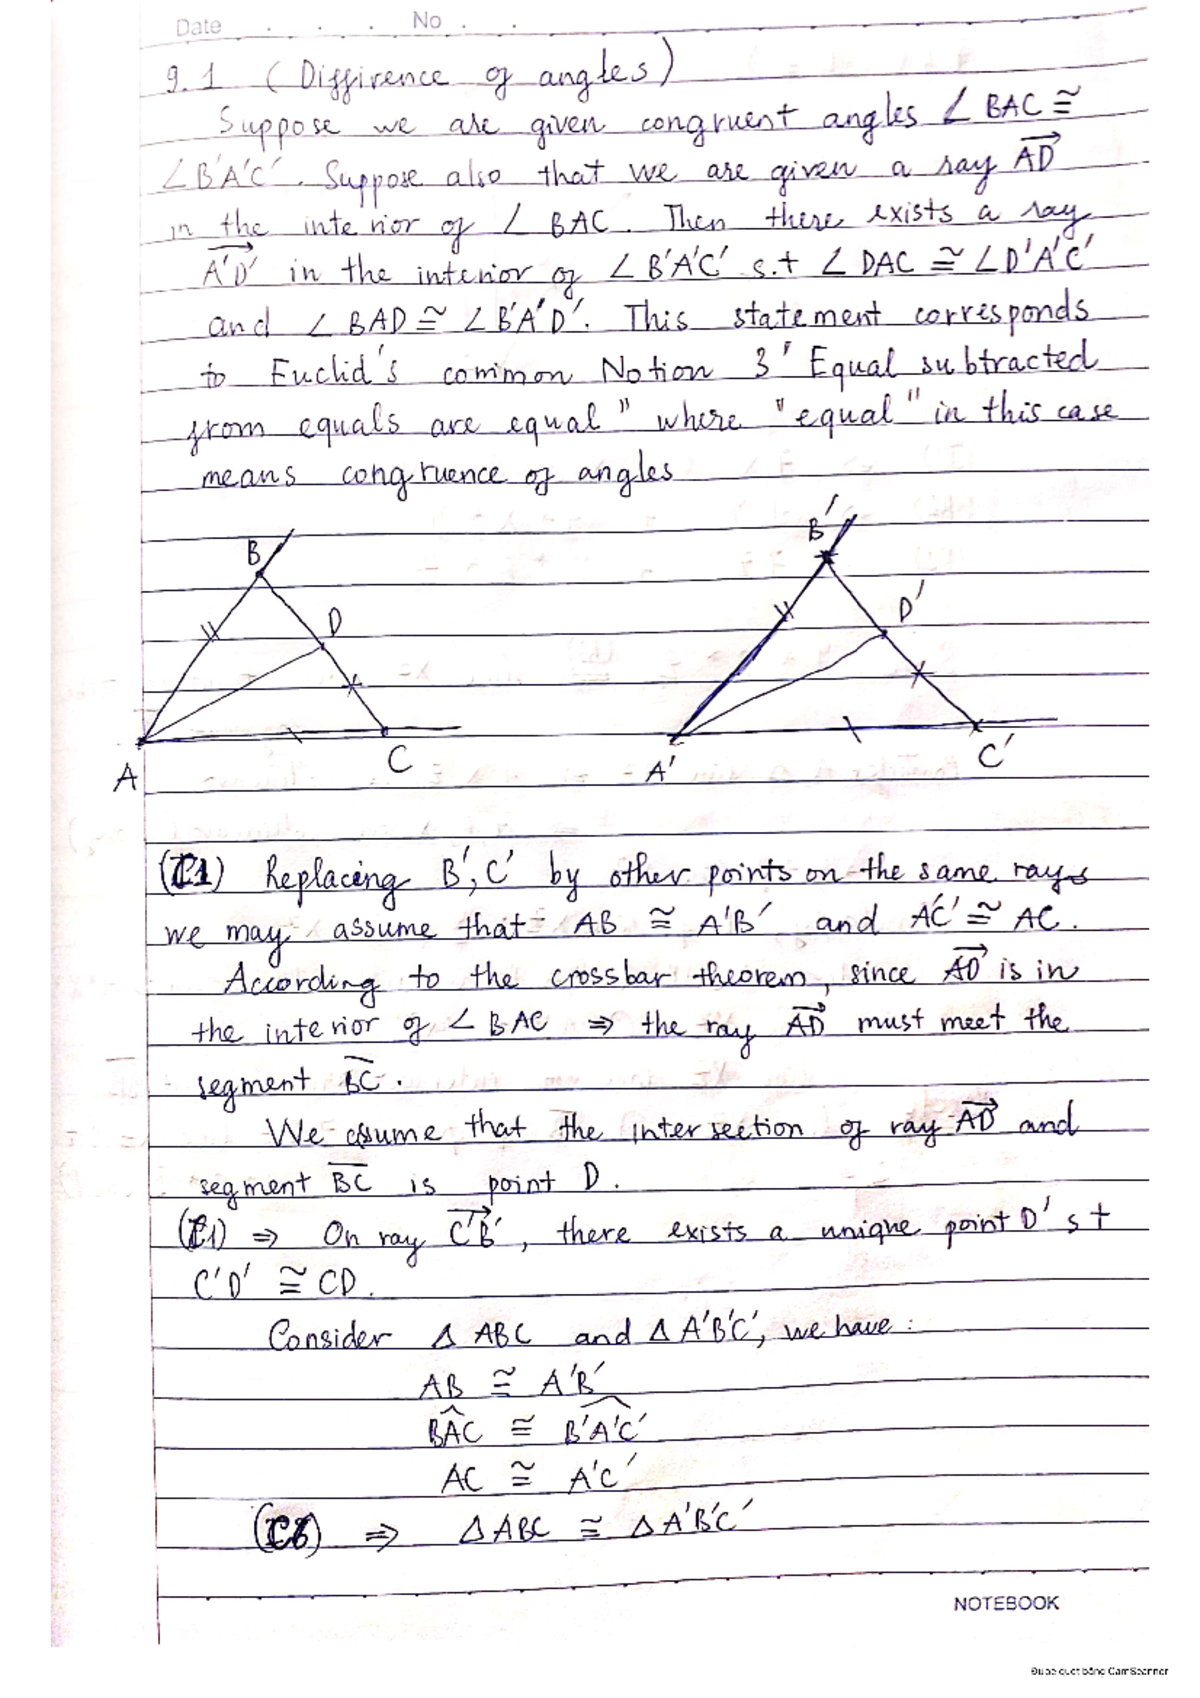 Date . . . . No . .
9.1 (Diffirence of angles)
Suppose we are given congruent angles ∠BAC ≅
∠B'A'C'. Suppose also that we are given a ray AD
in the interior of ∠BAC. Then there exists a ray
A'D' in the interior of ∠B'A'C' s.t ∠DAC ≅ ∠D'A'C'
and ∠BAD ≅ ∠B'A'D'. This statement corresponds
to Euclid's common Notion 3 " Equal subtracted
from equals are equal" where "equal" in this case
means congruence of angles
B
D
A
C
B'
D'
A'
C'
(C1) Replacing B', C' by other points on the same rays
we may assume that AB ≅ A'B' and A'C' ≅ AC.
According to the crossbar theorem, since AD is in
the interior of ∠BAC ⇒ the ray AD must meet the
segment BC.
We assume that the intersection of ray AD and
segment BC is point D.
(C1) ⇒ On ray C'B', there exists a unique point D' s t
C'D' ≅ CD.
Consider Δ ABC and Δ A'B'C', we have:
AB ≅ A'B'
BAC ≅ B'A'C'
AC ≅ A'C'
(C6) ⇒ Δ ABC ≅ Δ A'B'C'
NOTEBOOK
Được quét bằng CamScanner